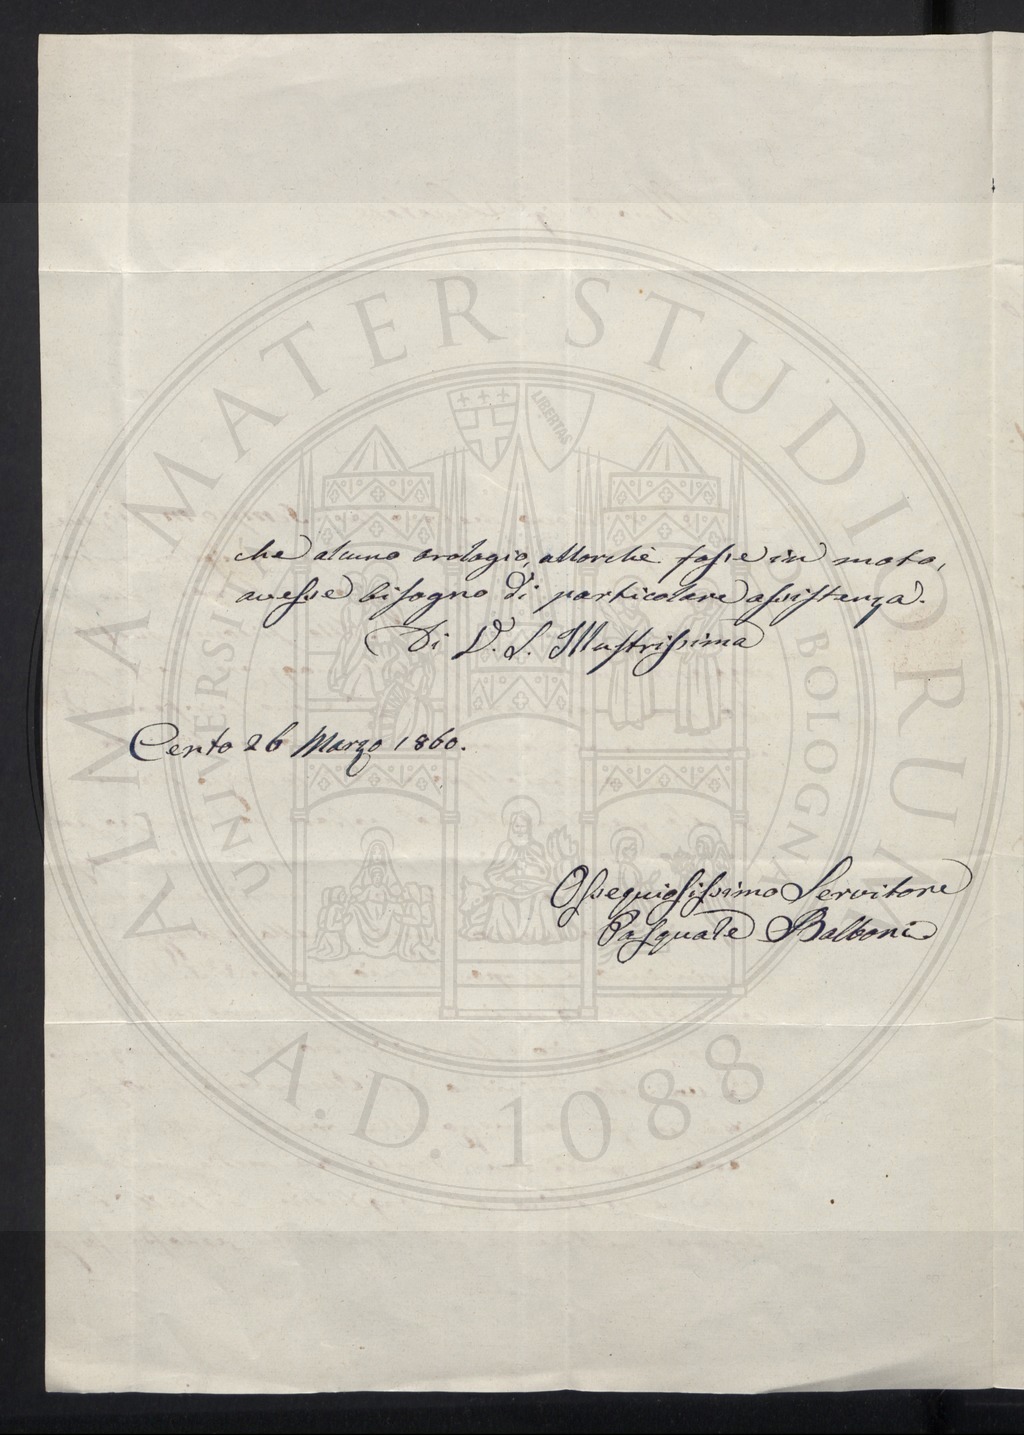 che alcuno orologio, allorchè fosse in moto,
avesse bisogno di particolare assistenza.
Di V. S. Illustrissima
Cento 26 Marzo 1860.
Ossequiosissimo Servitore
Pasquale Balboni
ALMA MATER STUDIORUM
UNIVERSITÀ DI BOLOGNA
LIBERTAS
A.D. 1088